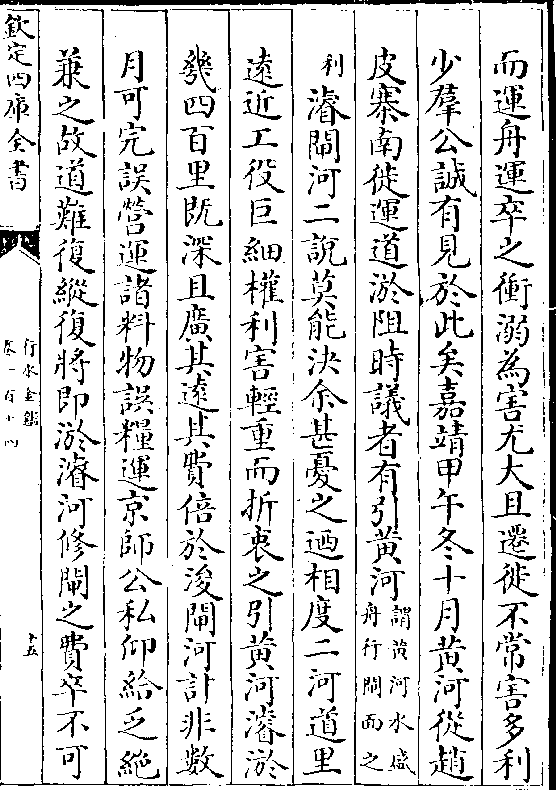 而運舟運卒之衝溺為害尤大且遷徙不常害多利
少羣公誠有見於此矣嘉靖甲午冬十月黄河從趙
皮寨南徙運道淤阻時議者有引黄河謂黄河水盛舟行閘面之
利濬閘河二說莫能決余甚憂之迺相度二河道里
遠近工役巨細權利害輕重而折衷之引黄河濬淤
㡬四百里既深且廣其遠其費倍於浚閘河計非數
月可完誤營運諸料物誤糧運京師公私仰給乏絶
兼之故道難復縱復將即淤濬河修閘之費卒不可
欽定四庫全書
行水金鑑
卷一百十四
十五